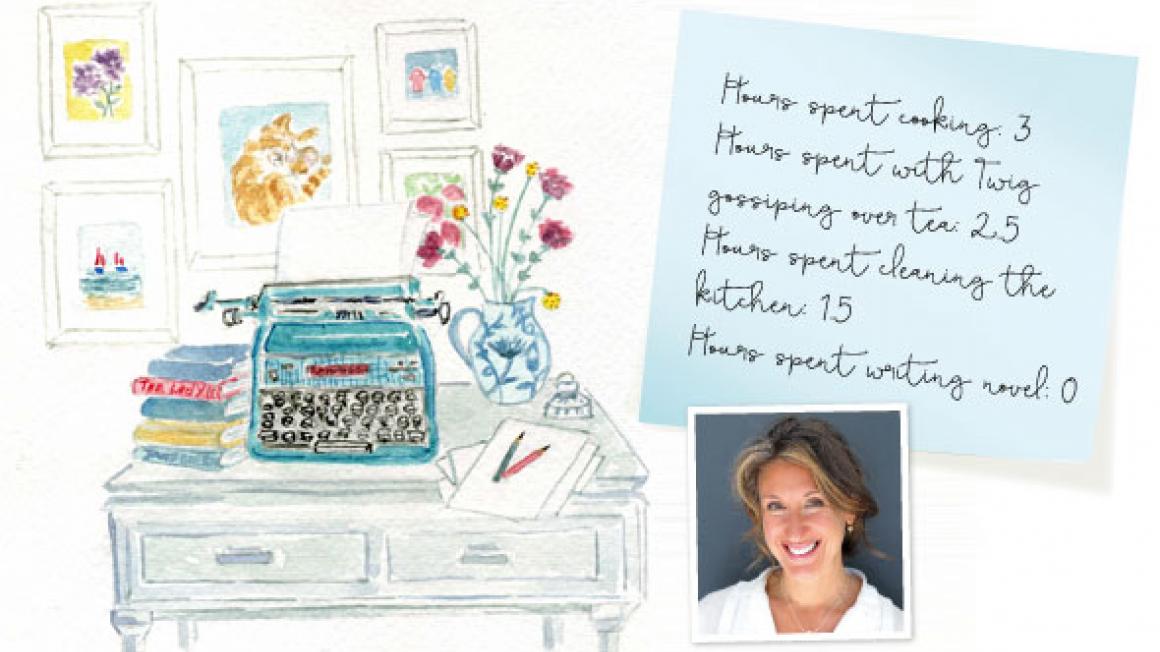 Hours spent cooking: 3
Hours spent with Twig
gossiping over tea: 2.5
Hours spent cleaning the
kitchen: 1.5
Hours spent writing novel: 0